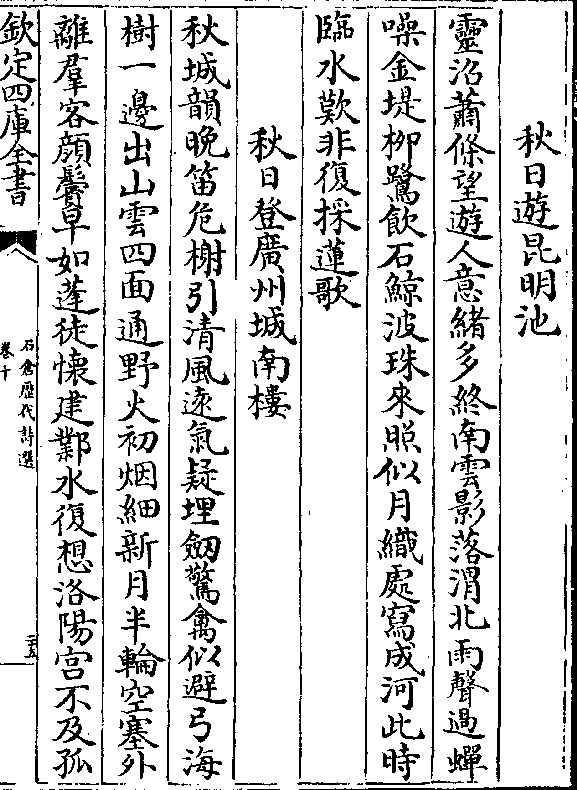 秋日遊昆明池
靈沼蕭條望遊人意緒多終南雲影落渭北雨聲過蟬
噪金堤柳鷺飲石鯨波珠來照似月織處寫成河此時
臨水歎非復採蓮歌
秋日登廣州城南樓
秋城韻晚笛危榭引清風遠氣疑埋劔驚禽似避弓海
樹一邊出山雲四面通野火初烟細新月半輪空塞外
離羣客顔鬢早如蓬徒懷建鄴水復想洛陽宫不及孤
欽定四庫全書
石倉歷代詩選
卷十
二十五